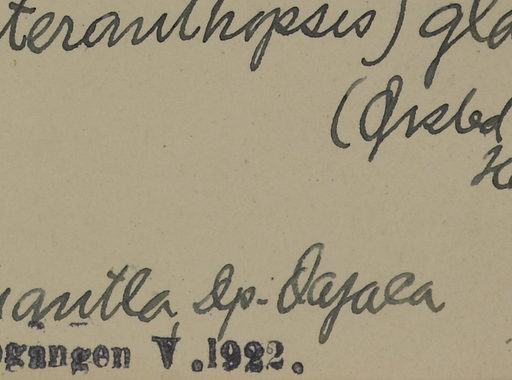 teranthopsis) gla
(Ørsted
uantla, Dp. Oajaca
gangen V.1922.